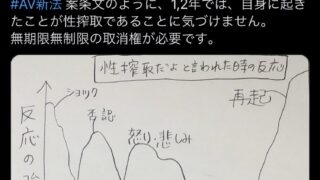 #AV新法 案条文のように、1,2年では、自身に起き
たことが性搾取であることに気づけません。
無期限無制限の取消権が必要です。
性搾取だよと言われた時の反応
ショック
再起
否認
怒り・悲しみ
反応の強